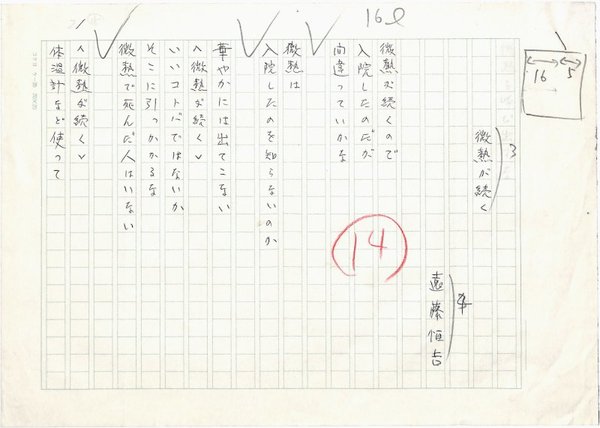 16ℓ
16
5
3
微熱が続く
4
遠藤恒吉
14
微熱が続くので
入院したのだが
間違っていかな
微熱は
入院したのを知らないのか
華やかには出てこない
<微熱が続く>
いいコトバではないか
そこに引っかかるな
微熱で死んだ人はいない
<微熱が続く>
体温計など使って